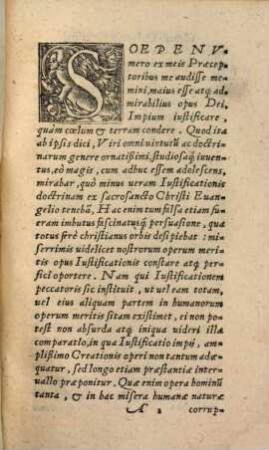 SOEPENV-
mero ex meis Præcep
toribus me audisse me
mini, maius esse atq; ad
mirabilius opus Dei,
Impium iustificare,
quàm cœlum & terram condere. Quod ita
ab ipsis dici, Viri omni uirtutū ac doctri
narum genere ornatißimi, studiosaq; iuuen
tus, eò magis, cum adhuc essem adolescens,
mirabar, quò minus ueram Iustificationis
doctrinam ex sacrosancto Christi Euan-
gelio tenebā, Hac enim tum falsa etiam fu-
eram imbutus fascinatusq; persuasione, qua
totus ferè christianus orbis desipiebat: mi-
serrimis uidelicet nostrorum operum meri-
tis opus Iustificationis constare atq; perfi
ci oportere. Nam qui Iustificationem
peccatoris sic instituit, ut uel eam totam,
uel eius aliquam partem in humanorum
operum meritis sitam existimet, ei non po-
test non absurda atq; iniqua uideri illa
comparatio, in qua Iustificatio impij, am-
plißimo Creationis operi non tantum adæ-
quatur, sed longo etiam præstantiæ inter-
uallo præponitur. Quæ enim opera hominū
tanta, & in hac misera humanæ naturæ
A 2 corrup-